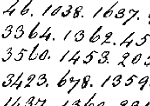 46. 1038. 1637.
3364. 1362. 45
3560. 1453. 205
3423. 678. 1359.